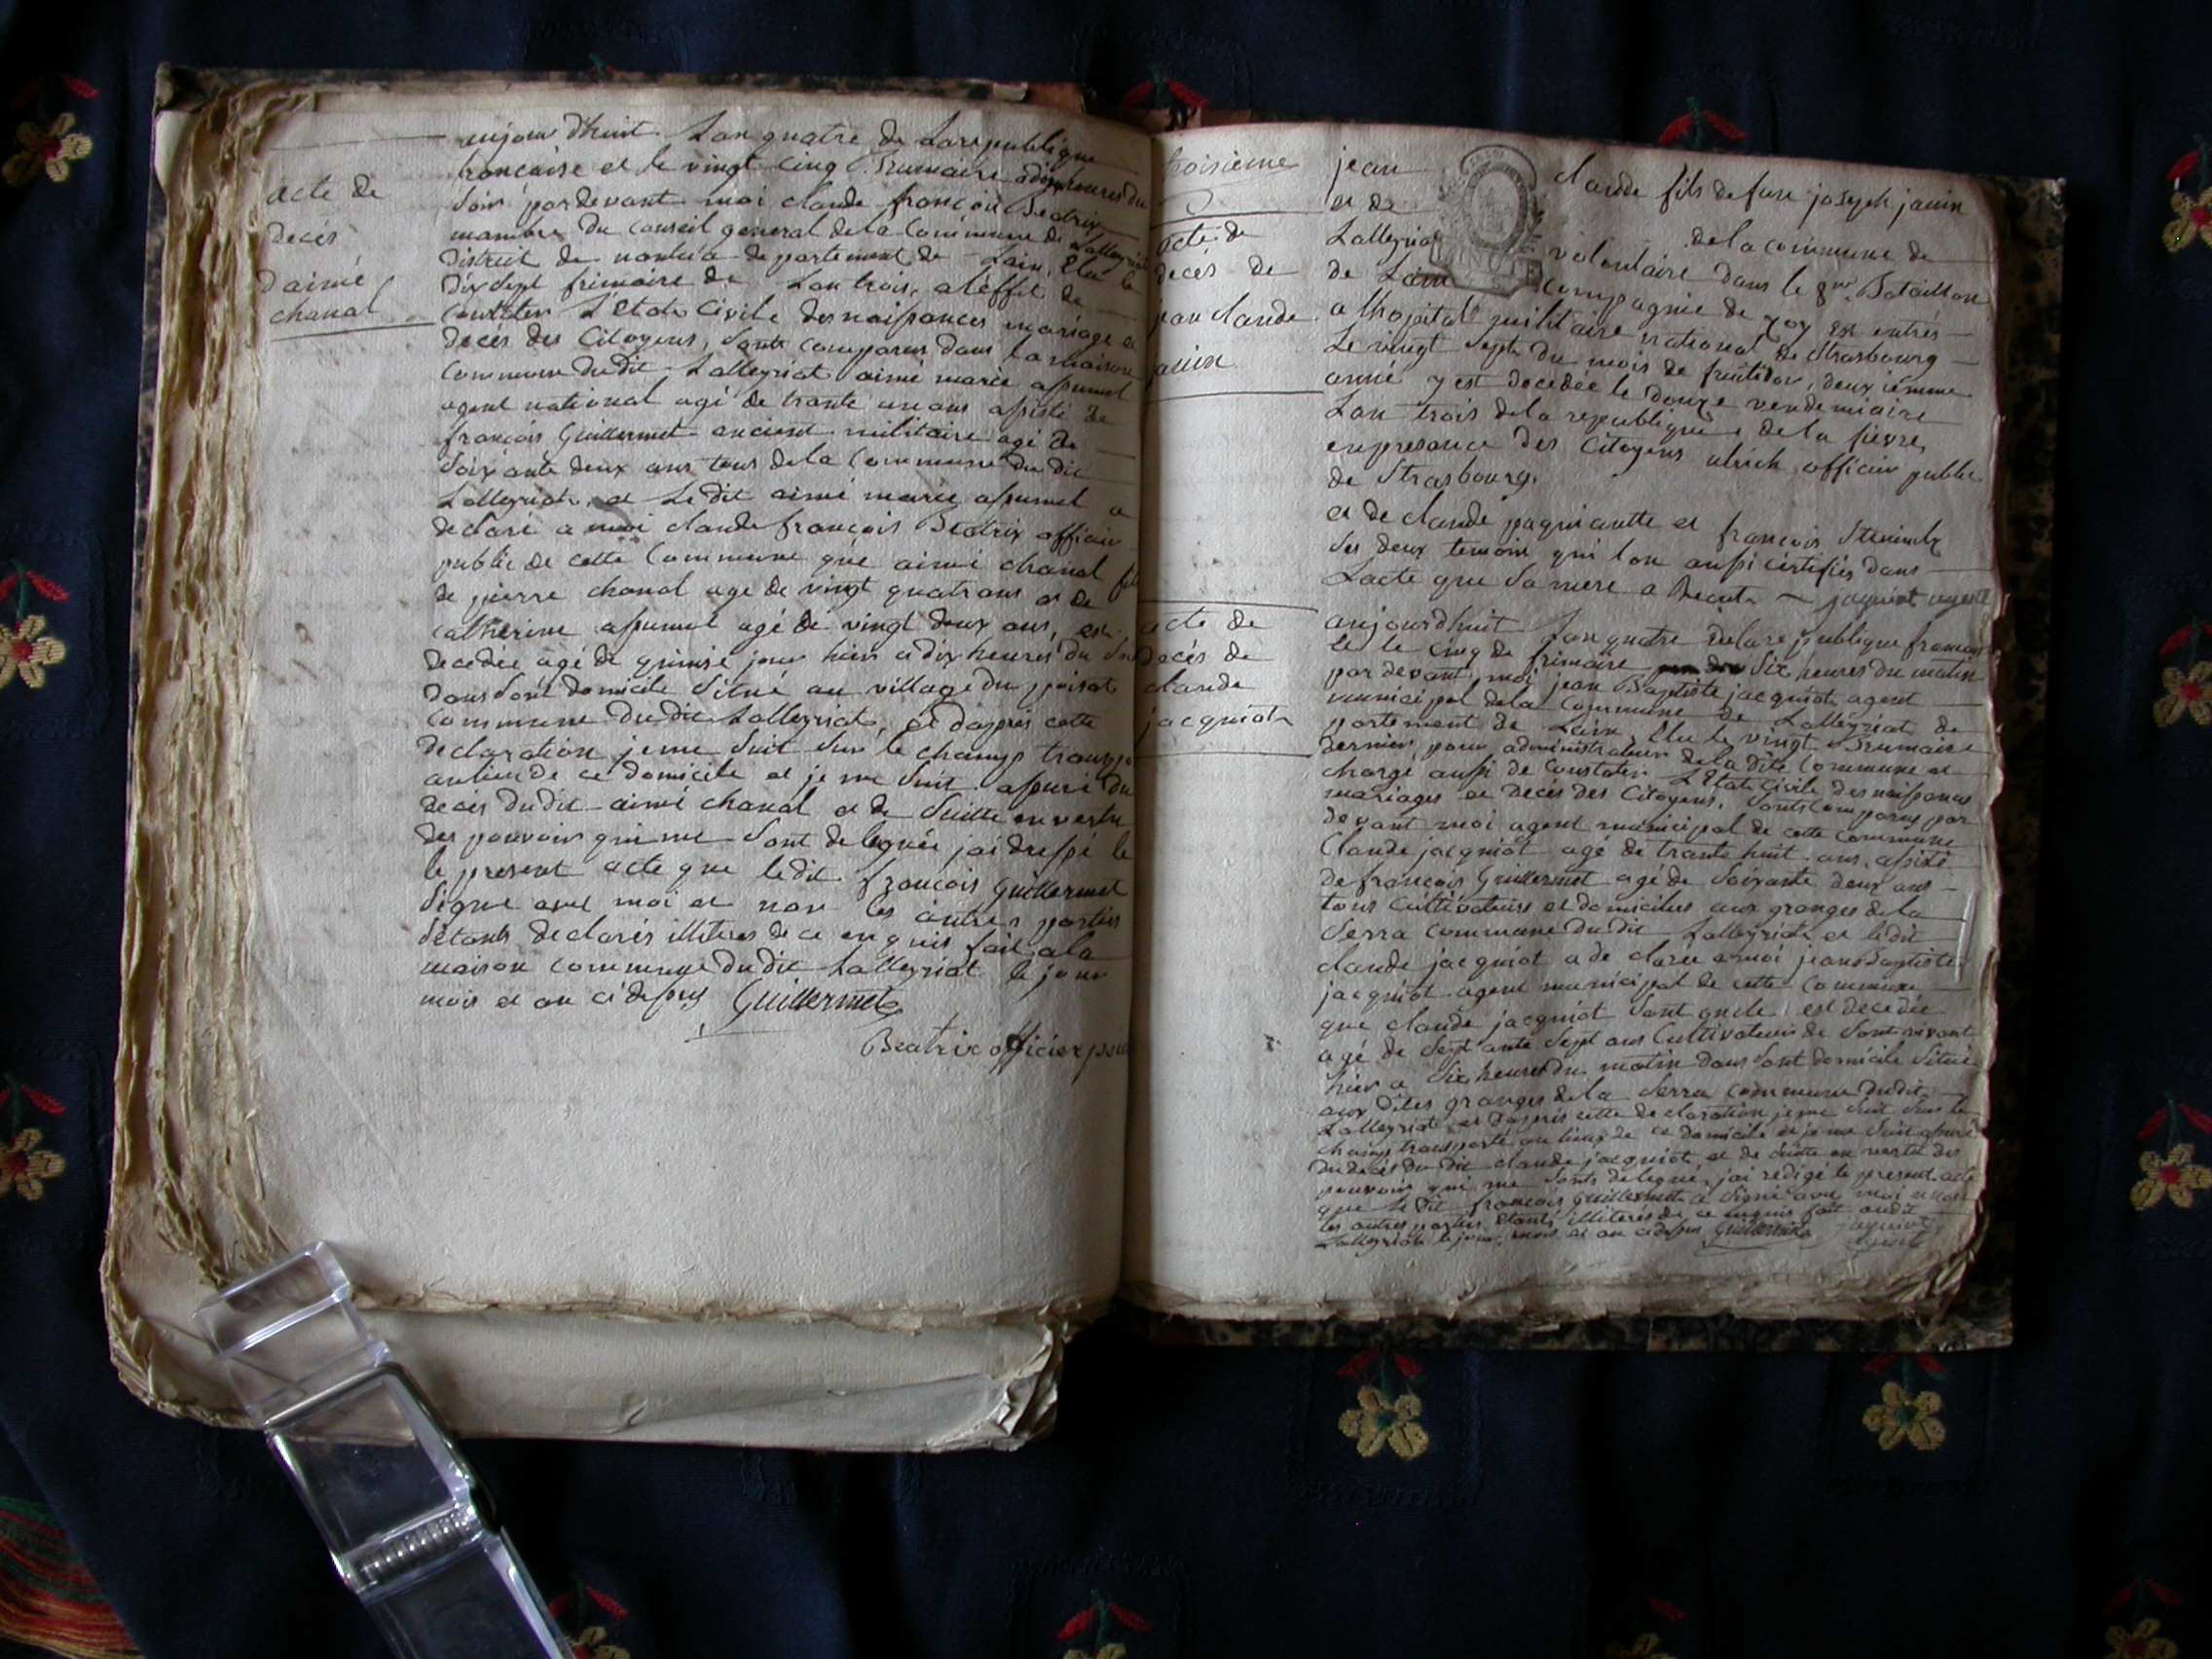 aujourdhuit Lan quatre de Larepublique
francaise et le vingt cinq Brumaire a dix heures du
Soir pardevant moi claude francois Beatrix
membre du Conseil general dela Commune de Lalleyriat
District de nantua departement de Lain, Elu le
Dixsept frimaire de Lan trois, aleffet de
Constater L'Etat Civile des naissances mariage et
Decés des Citoyens, Sont comparus dans la maison
Commune Dudit Lalleyriat aimé marie assumel
agent national agé de trante un ans assisté de
françois Guillermet ancient militaire agé de
Soixante deux ans tous dela Commune du dit
Lalleyriat, et Ledit aimé marie assumel a
declaré a moi claude françois Beatrix officier
public de cette Commune que aimé chanal fils
de pierre chanal age de vingt quatrans et de
catherine assumel agé de vingt deux ans, est
decedée agé de quinse jour hier a dix heures du Soir
dans Sont domicile Situé au village du poisat
Commune Dudit Lalleyriat, et dapres cette
declaration jeme Suit Sur le champs transpo
au lieu de ce domicile et je me Suit assuré du
decès dudit aimé chanal et de Suitte en vertu
des pouvoir qui me Sont delegués jai dressé le
le present acte que ledit françois Guillermet
Signe avec moi et non les autres parties
Setants declarés illiteres de ce enquis fait a la
maison commune dudit Lalleyriat le jour
mois et an cidessus Guillermet
Beatrix officier
acte de
decés
daimé
chanal
troisieme
acte de
decés de
jean claude
janin
jean claude fils de fure joseph janin
et de
Lalleyriat dela commune de
de Lain volontaire dans le 8me Bataillon
compagnie de est entrés
a lhopital militaire national de Strasbourg
Le vingt Sept du mois de fruitidor, deux iemme
anné y est decedée le douze vendemiaire
Lan trois dela republique de la fievre,
enpresance des Citoyens ulrich officier public
de Strasbourg.
et de claude et françois
Ses deux temoin qui lon aussi certifiés dans
Lacte que Sa mere a Recut jaquiot agent
acte de
decés de
claude
jacquiot
aujourdhuit Lan quatre delare publique francais
le cinq de frimaire Six heures du matin
par devant moi jean Baptiste jacquiot agent
municipal dela Commune de Lalleyriat de
partement de Lain, Elu le vingt Brumaire
dernier pour administrateur de la dite Commune et
chargé aussi de Constater L'Etat Civile des naissances
mariages et decés des Citoyens, Sont comparus par
devant moi agent municipal de cette commune
Claude jacquiot agé de trante huit ans, assisté
de françois Guillermet agé de Soixante deux ans
tous Cultivateurs et domiciliés aux granges dela
Serra commune du dit Lalleyriat et ledit
claude jacquiot a de clarée a moi jean Baptiste
jacquiot agent municipal de cette Commune
que claude jacquiot Sont oncle est decedée
agé de Sept ante Sept ans Cultivateur de Sont vivant
hier a Six heures du matin dans Sont domicile Situé
aux dites granges dela Serra Commune dudit
Lalleyriat et dapres cette declaration jeme Suit Sur le
champs transporté au lieux de ce domicile et je me Suit assuré
du decés du dit claude jacquiot et de Suitte en vertu des
pouvoirs qui me Sont delegué, jai redigé le present acte
que le dit françois Guillermet a Signé avec moi et non
les autres parties Etants illiterés de ce enquis fait audit
Lalleyriat le jour, mois et an cidessus Guillermet jaquiot
agent